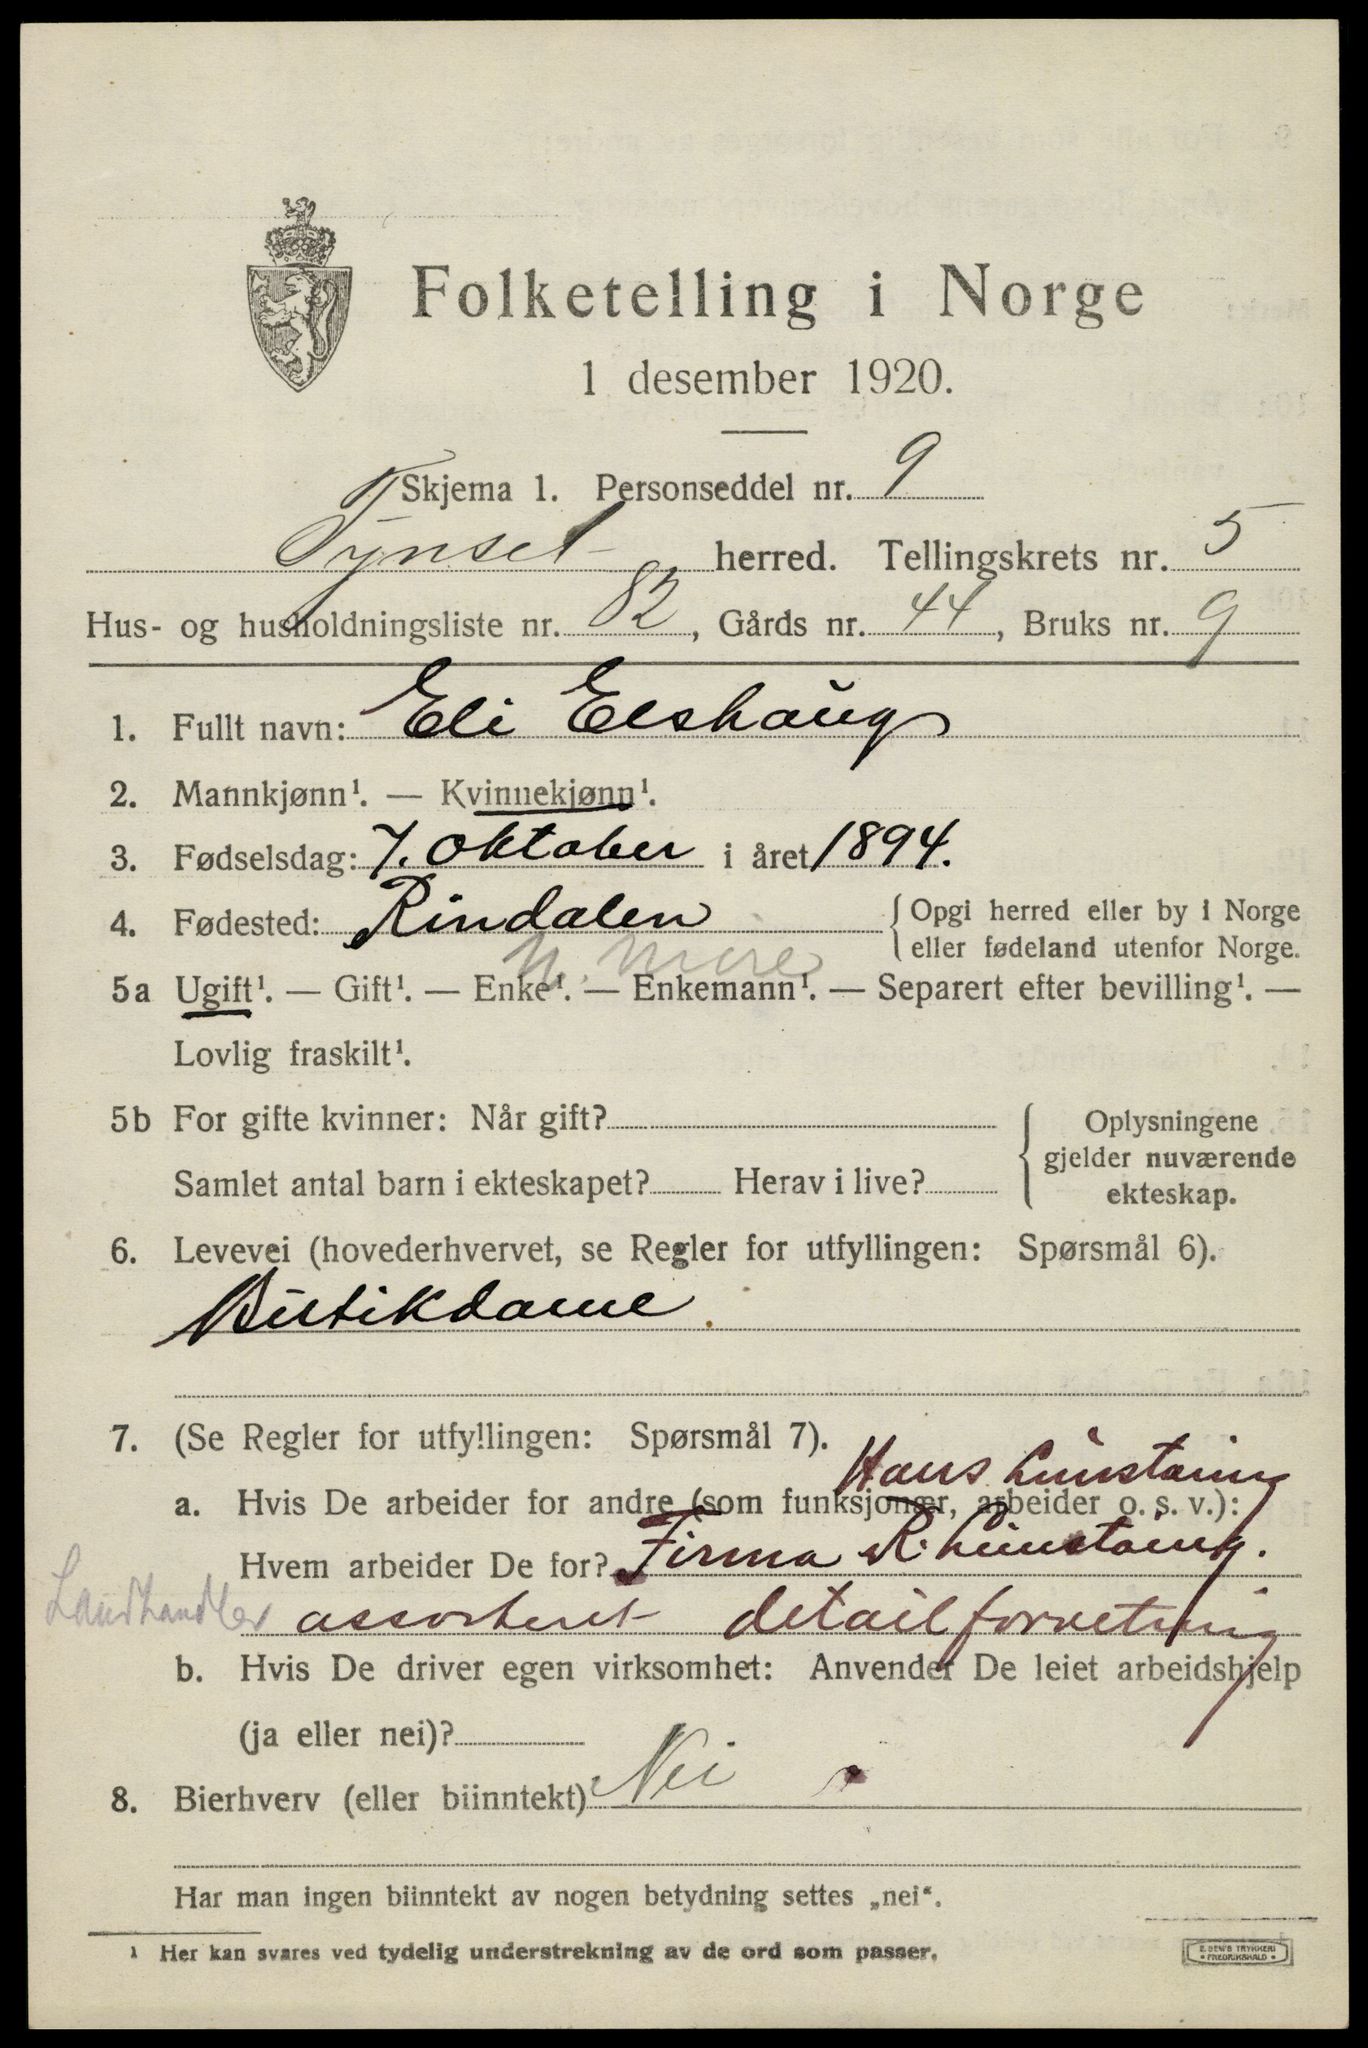 Folketelling i Norge
1 desember 1920.
Skjema 1. Personseddel nr. 9
Tynset herred. Tellingskrets nr. 5
Hus- og husholdningsliste nr. 82, Gårds nr. 44, Bruks nr. 9
1. Fullt navn: Eli Elshaug
2. Mannkjønn¹. — Kvinnekjønn¹.
3. Fødselsdag: 7. oktober i året 1894.
4. Fødested: Rindalen { Opgi herred eller by i Norge
eller fødeland utenfor Norge.
N. Møre
5a Ugift¹. — Gift¹. — Enke¹. — Enkemann¹. — Separert efter bevilling¹. —
Lovlig fraskilt¹.
5b For gifte kvinner: Når gift? { Oplysningene
gjelder nuværende
ekteskap.
Samlet antal barn i ekteskapet? Herav i live?
6. Levevei (hovederhvervet, se Regler for utfyllingen: Spørsmål 6).
Butikdame.
7. (Se Regler for utfyllingen: Spørsmål 7).
Hans
a. Hvis De arbeider for andre (som funksjonær, arbeider o. s. v.):
Hvem arbeider De for? Firma R.
Landhandler assorteret detailforretning
b. Hvis De driver egen virksomhet: Anvender De leiet arbeidshjelp
(ja eller nei)?
8. Bierhverv (eller biinntekt) Nei
Har man ingen biinntekt av nogen betydning settes „nei“.
¹ Her kan svares ved tydelig understrekning av de ord som passer.
E. SEM'S TRYKKERI
FREDRIKSHALD